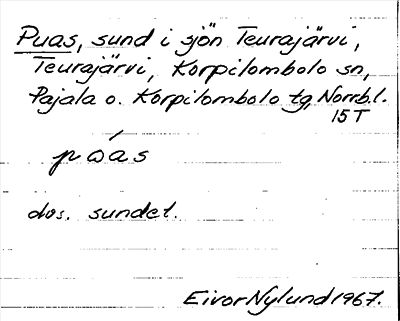 Puas, sund i sjön Teurajärvi,
Teurajärvi, Korpilombolo sn,
Pajala o. Korpilombolo tg, Norrb.l.
15 T
dos. sundet.
Eivor Nylund 1967.